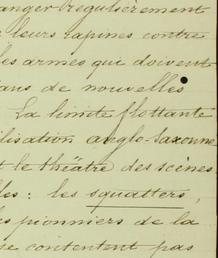 anger régulièrement
leurs rapines contre
les armes qui doivent
de nouvelles
La limite flottante
ilisation anglo-saxonne
t le théâtre des scènes
les : les squatters,
es pionniers de la
se contentent pas